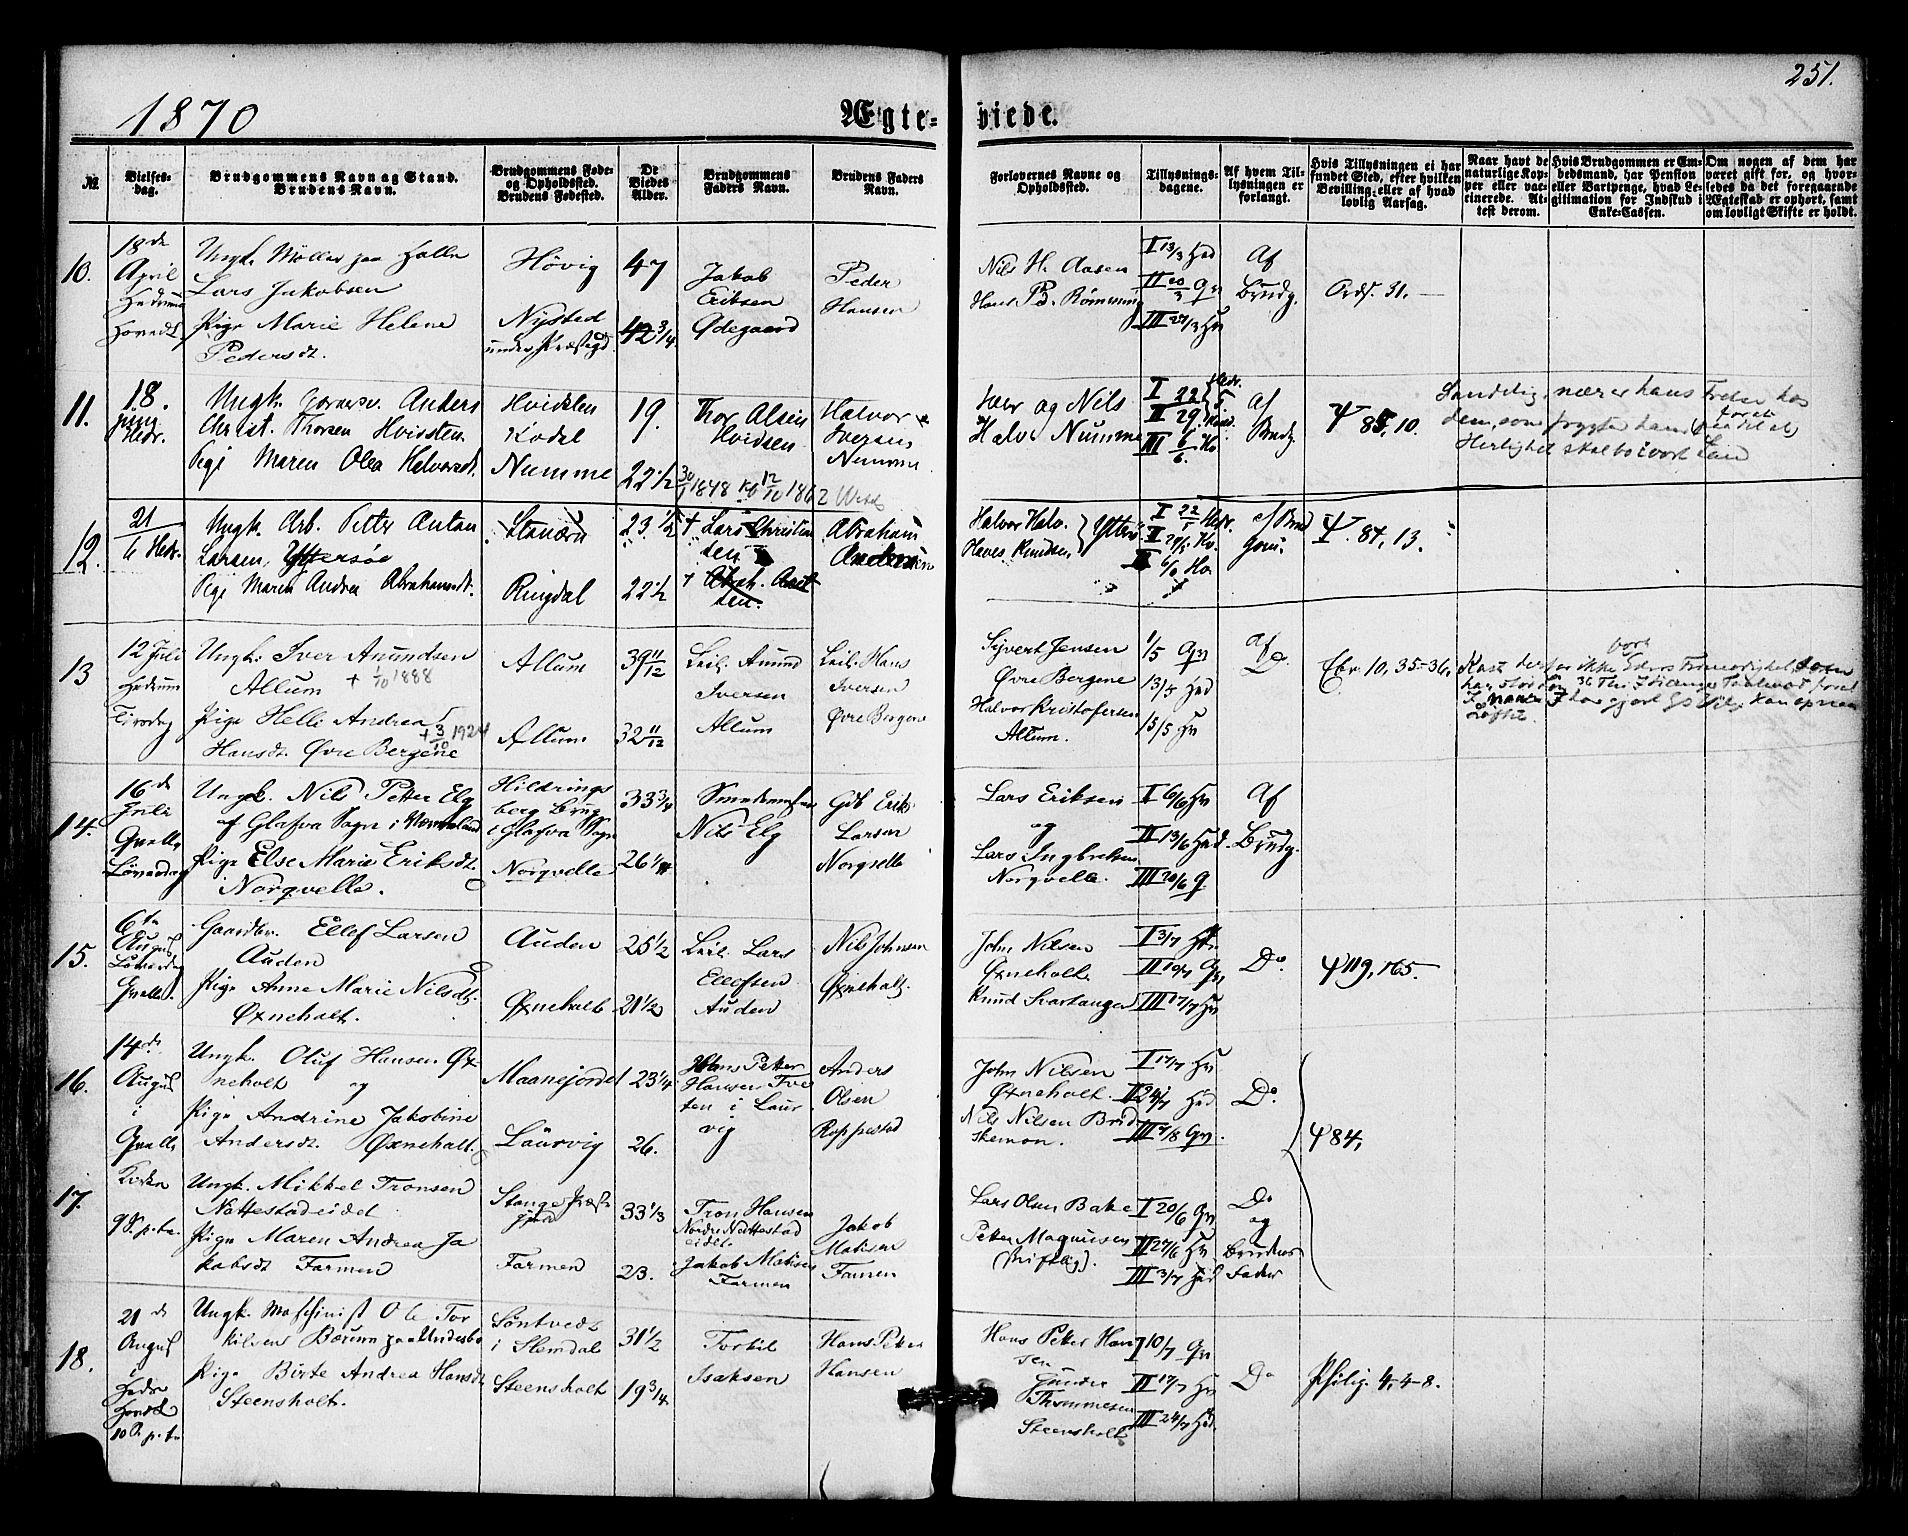 251.
1870
Ægte-
viede.
№
Vielses-
dag.
Brudgommens Navn og Stand.
Brudens Navn.
Brudgommens Føde-
og Opholdssted.
Brudens Fødested.
De
Viedes
Alder.
Brudgommens
Faders Navn.
Brudens Faders
Navn.
Forlovernes Navne og
Opholdssted.
Tillysnings-
dagene.
Af hvem Til-
lysningen er
forlangt.
Hvis Tillysningen ei har
fundet Sted, efter hvilken
Bevilling eller af hvad
lovlig Aarsag.
Naar havt de
naturlige Kop-
per eller vac-
cinerede. At-
test derom.
Hvis Brudgommen er Em-
bedsmand, har Pension
eller Vartpenge, hvad Le-
gitimation for Indskud i
Enke-Cassen.
Om nogen af dem har
været gift før, og hvor-
ledes da det foregaaende
Ægteskab er ophørt, samt
om lovligt Skifte er holdt.
10.
18de
April
Ungk. Møller paa Halle
Lars Jakobsen
Pige Marie Helene
Pedersdt.
Høvig
Nysted
under Præstegd.
47
42 3/4
Jakob
Eriksen
Ødegaard
Peder
Hansen
Nils H. Aasen
Hans Pd. Rømming
I 13/3 Hed
II 20/3 Qv
III 27/3 Hv
Af
Brudg.
Ords. 31.
11.
18.
juni
Hedr.
Ungk. Anders
Christ. Thorsen Hvidsten
Pige Maren Olea Halvorsdt.
Hvidsten
Kodal
Numme
19.
22 1/2
Thor Olsen
Hvidsten
Halvor
Iversen
Numme
Iver og Nils
Halv. Numme
I 22/5 Hedr.
II 29/5
III 6/6. Ho
af
Brudg
Ψ 85, 10.
Sandelig, nær er hans Frelse hos
dem, som frygte ham, for at
Herlighet skal bo i vort Land
12.
21/6 Hedr.
Ungk. Arb. Petter Anton
Larsen, Yttersøe
Pige Maren Andrea Abrahamsdt.
Stavern
Ringdal
23. 1/2
22 1/2
+ Lars Christian
sen
Abraham
Andersen
Halvor Halv.
Yttersø
I 22/5 Hedr.
II 29/5 Ho.
III 6/6 Ho.
af Brud
gom.
Ψ. 84, 13.
13
12 Juli
Hedrum
Tirsdag
Ungk. Iver Anundsen
Allum + /10 1888
Pige Helle Andrea
Hansdt. Øvre Bergene
+ 3/10 1924
Allum
Allum
39 11/12
32 11/12
Leil. Anund
Iversen
Allum
Leil. Hans
Iversen
Øvre Bergene
Syvert Jensen
Øvre Bergene
Halvor Kristofersen
Allum.
1/5 Qv
13/5 Hed
15/5 Hv
af
Do.
Ebr. 10, 35-36.
Kast derfor ikke bort Eders Frimodighed som
har stor Løn 36 Thi I
14.
16de
Juli
Qvelle
Løverdag
Ungk. Nils Petter Elg
af Glafva Sogn i Värmeland
Pige Else Marie Eriksdt.
Norqvelle.
Hildrings
berg Brug
i Glafva Sogn
Norqvelle
33 3/4
26 1/4
Nils Elg
Gdb. Erik
Larsen
Norqvelle
Lars Eriksen
og
Lars Ingbretsen
Norqvelle.
I 6/6 Hv
II 13/6 Hed.
III 20/6 Q
Af
Brudg.
15.
6te
August
Løverdag
Qvelle.
Gaardbr. Ellef Larsen
Auden
Pige Anne Marie Nilsdt.
Øxneholt.
Auden
Øxneholt
25 1/2
21 1/2
Leil. Lars
Ellefsen
Auden
Nils Johnsen
Øxneholt.
John Nilsen
Øxneholt.
Knud Svartangen
I 3/7 Hv
II 10/7 Qv
III 17/7 Hv
Do.
Ψ 119, 165.
16.
14de
August
i
Qvelle
Kirken
Ungk. Oluf Hansen Øx-
neholt og
Pige Andrine Jakobine
Andersdt. Øxneholt.
Maanejordet
Laurvig
23 1/4
26.
Hans Petter
Hansen Tve
ten i Laur
vig
Anders
Olsen
Roppestad
John Nilsen
Øxneholt.
Nils Nilsen
I 17/7 Hv
II 24/7 Hed
III 7/8 Qv.
Do.
Ψ 84,
17.
Ungk. Mikkel Tronsen
Nattestadeidet
Pige Maren Andrea Ja
kobsdt Farmen
Stange Præste
gjeld
Farmen
33 1/3
23.
Tron Hansen
Nordre Nattestad
eidet.
Jakob Matisen
Farmen
Jakob
Matisen
Farmen
Lars Olsen Bakke
Petter Magnusen
I 20/6 Qv
II 27/6 Hv
III 3/7 Hed
Do
og
Brudens
Fader
18.
21de
August
i
Ungk. Maschinist Ole Tor
kilsen Bærum paa
Pige Birte Andrea Hansdt
Steensholt.
Sontvedt
i Slemdal
Steensholt
31 1/2
19 3/4
Torkil
Isaksen
Hans Peter
Hansen
Hans Petter Han
sen
Gunder
Thommesen
Steensholt
I 10/7 Qv
II 17/7 Hv
III 24/7 Hed.
Do
Philip. 4, 4-8.